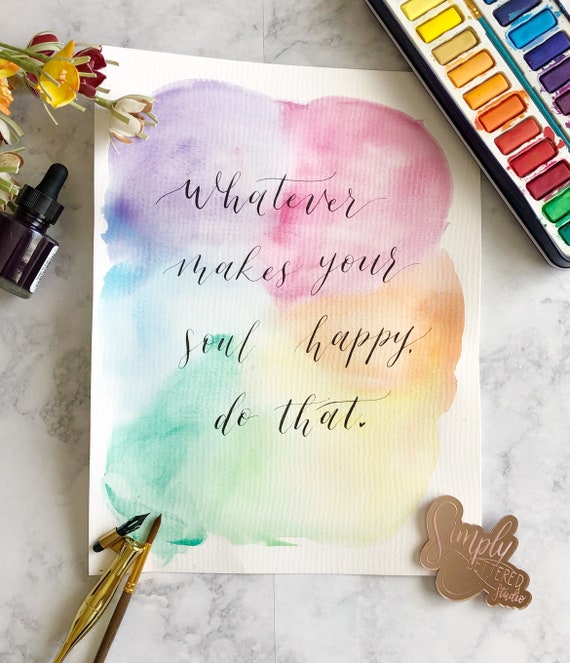 Whatever
makes your
soul happy.
do that.
Simply
LETTERED
Studio